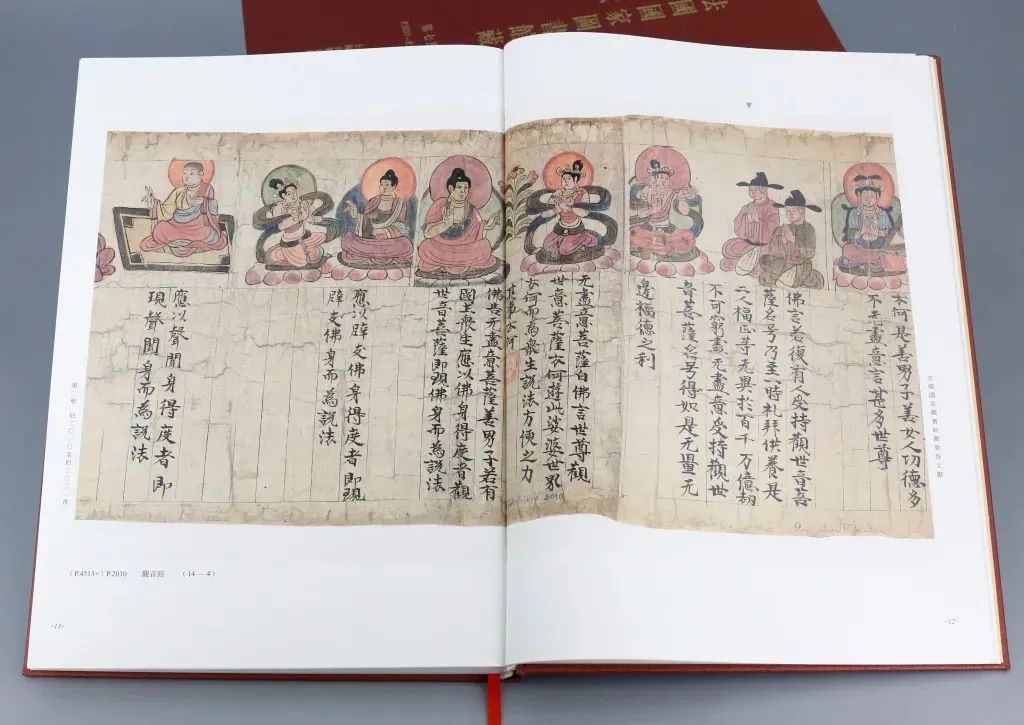 法國國家圖書館藏
法國國家圖書館藏敦煌文獻
云何是善男子善女人功德多
不无盡意言甚多世尊
佛言若復有受持觀世音菩
薩名号乃至一時礼拜供養是
二人福正等无異於百千万億劫
不可窮盡无盡意受持觀世
音菩薩名号得如是无量无
邊福德之利
无盡意菩薩白佛言世尊觀
世音菩薩云何遊此娑婆世界
云何而為衆生說法方便之力
其事云何
佛告无盡意菩薩善男子若有
國土衆生應以佛身得度者觀
世音菩薩即現佛身而為說法
應以辟支佛身得度者即現
辟支佛身而為說法
應以聲聞身得度者即
現聲聞身而為說法
(P.4513+) P.2010 觀音經 (14—4)
·13·
·12·